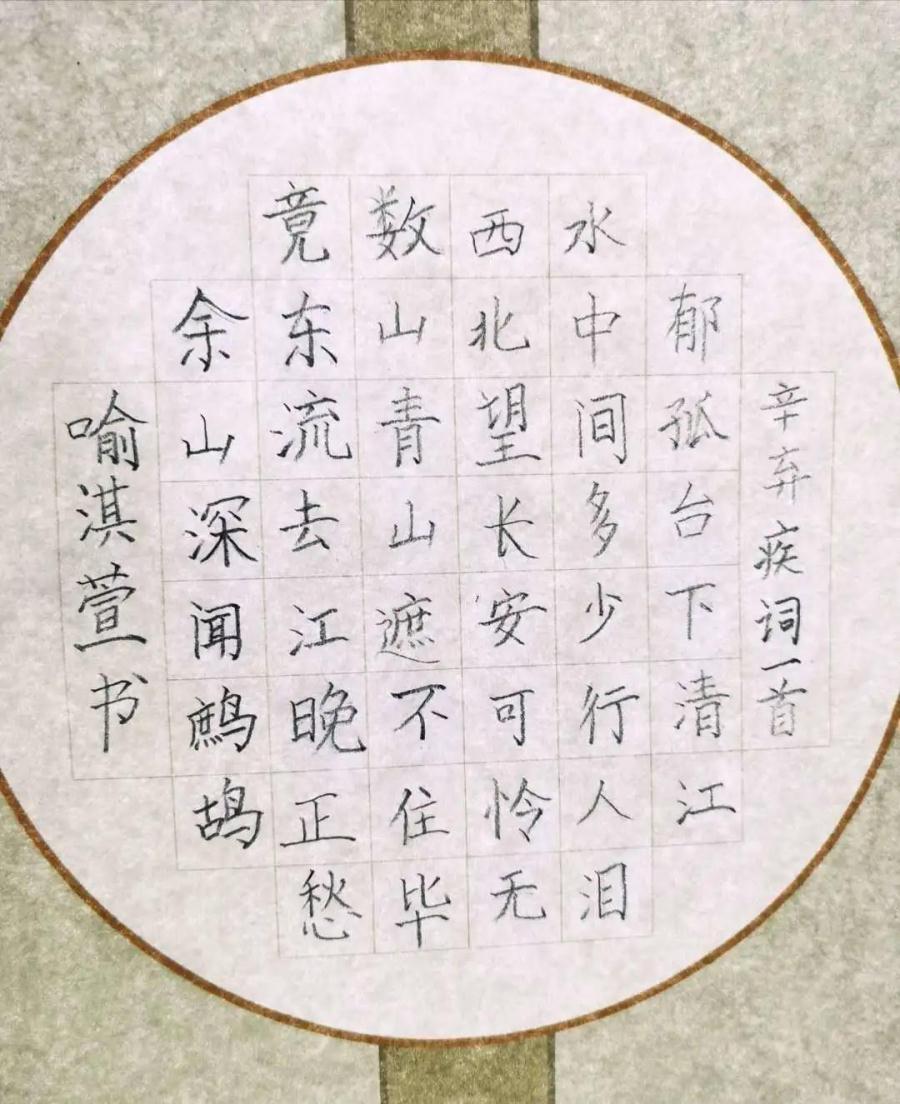 辛弃疾词一首
郁孤台下清江
水中间多少行人泪
西北望长安可怜无
数山青山遮不住毕
竟东流去江晚正愁
余山深闻鹧鸪
喻淇萱书